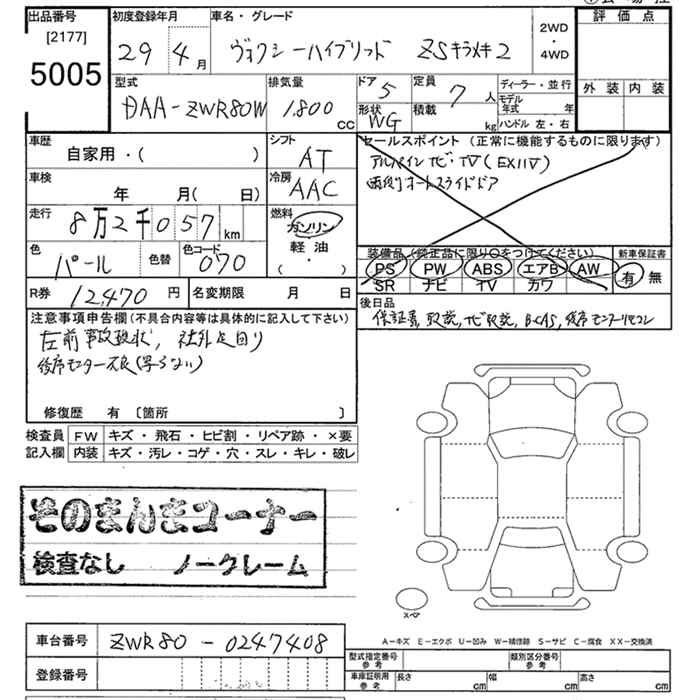 出品番号 初度登録年月 車名・グレード 評価点
[2177]
5005
29 4月 ヴォクシーハイブリッド ZSキラメキ2
2WD
・
4WD
外装 内装
型式 排気量 ドア 5 定員 7人 ディーラー・並行
DAA-ZWR80W 1,800 CC
形状 WG 積載 kg
モデル年式 年
ハンドル 左・右
車歴 シフト セールスポイント (正常に機能するものに限ります)
自家用・( ) AT
アルパインナビ・TV(EX11V)
両側オートスライドドア
車検 冷房
年 月( 日) AAC
走行 燃料
8万2千057km ガソリン
軽油
( ・ )
色 パール 色替 色コード 070
装備品 (純正品に限り○をつけてください) 新車保証書
PS PW ABS エアB AW 有 無
SR ナビ TV カワ
R券 12,470円 名変期限 月 日
後日品
保証書, 取説, ナビ取説, B-CAS, 後席モニターリモコン
注意事項申告欄(不具合内容等は具体的に記入して下さい)
左前事故現状, 社外足回り
後席モニター不良(写らない)
修復歴 有 〔箇所 〕
検査員 FW キズ・飛石・ヒビ割・リペア跡・×要
記入欄 内装 キズ・汚レ・コゲ・穴・スレ・キレ・破レ
そのまんまコーナー
検査なし ノークレーム
スペア
A-キズ E-エクボ U-凹み W-補修跡 S-サビ C-腐食 XX-交換済
車台番号 ZWR80-0247408
登録番号
型式指定番号 参考 類別区分番号 参考
車庫証明用 参考 長さ cm 幅 cm 高さ cm